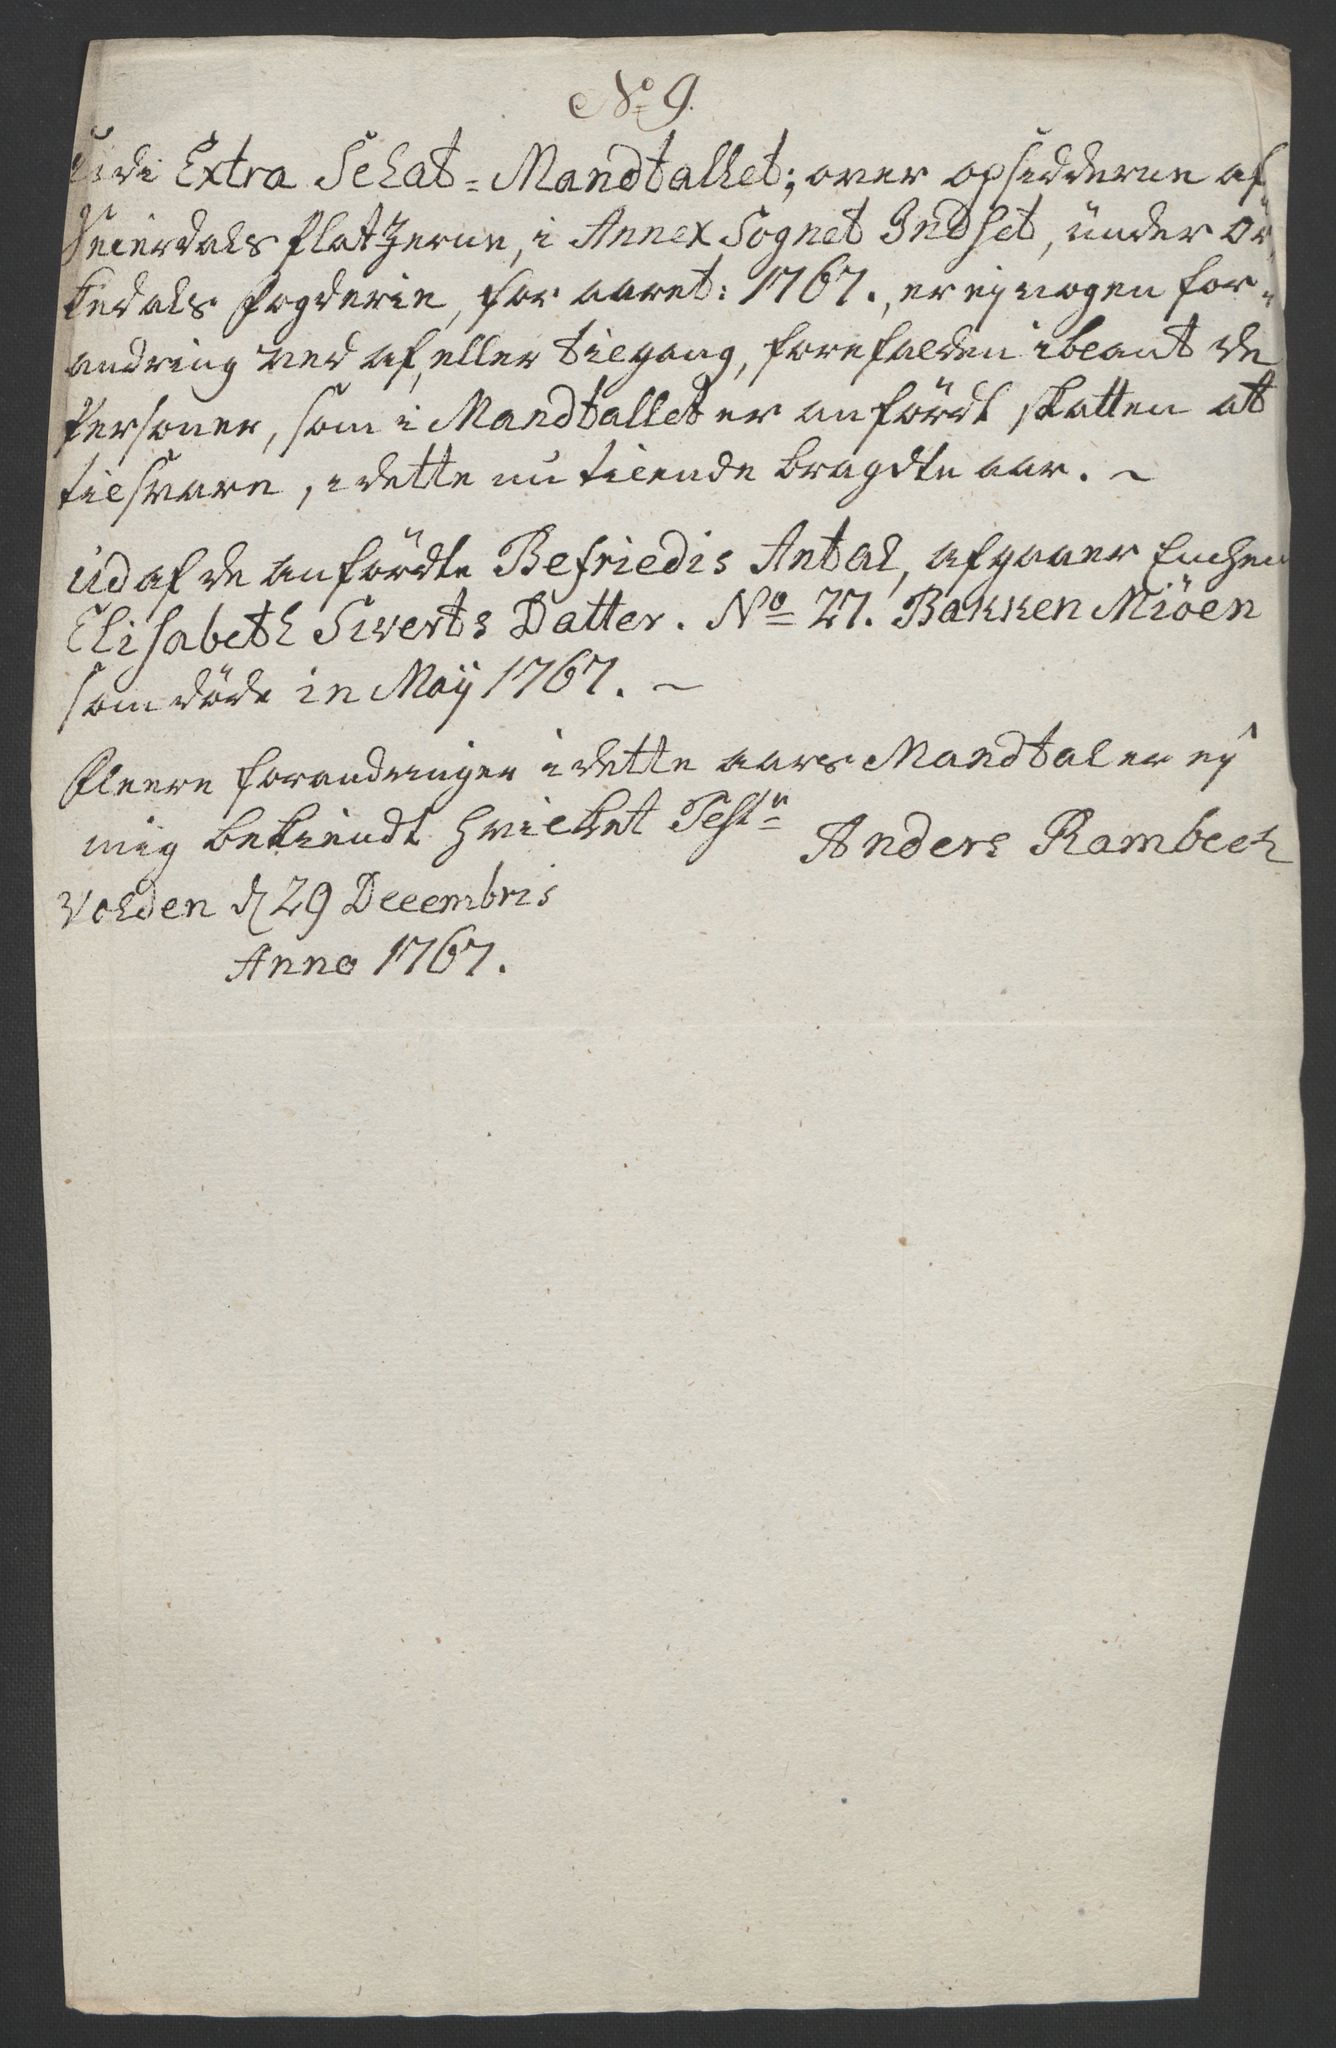 No 9.
Udi Extra Schat = Mandtallet; over opsidderne af
Platzerne, i Annex Sognet Indset, ünder Or,,
kedals fogderie, for aaret: 1767., er ej nogen for-
andring ved af, eller tilgang, forefalden iblant de
Personer, som i Mandtallet er anfördt skatten at
tilsvare, i dette nu tilende bragdte aar. ~
üd af de anfördte Befriedis Antal, afgaaer Enchen
Elisabeth Siverts Datter. No 27. Bakken Miöen
som döde in Maij 1767. ~
fleere forandringer i dette aars Mandtal er ej
mig bekiendt hvilket Test:r
Anders Rambech
Volden d 29 Decembris
Anno 1767.